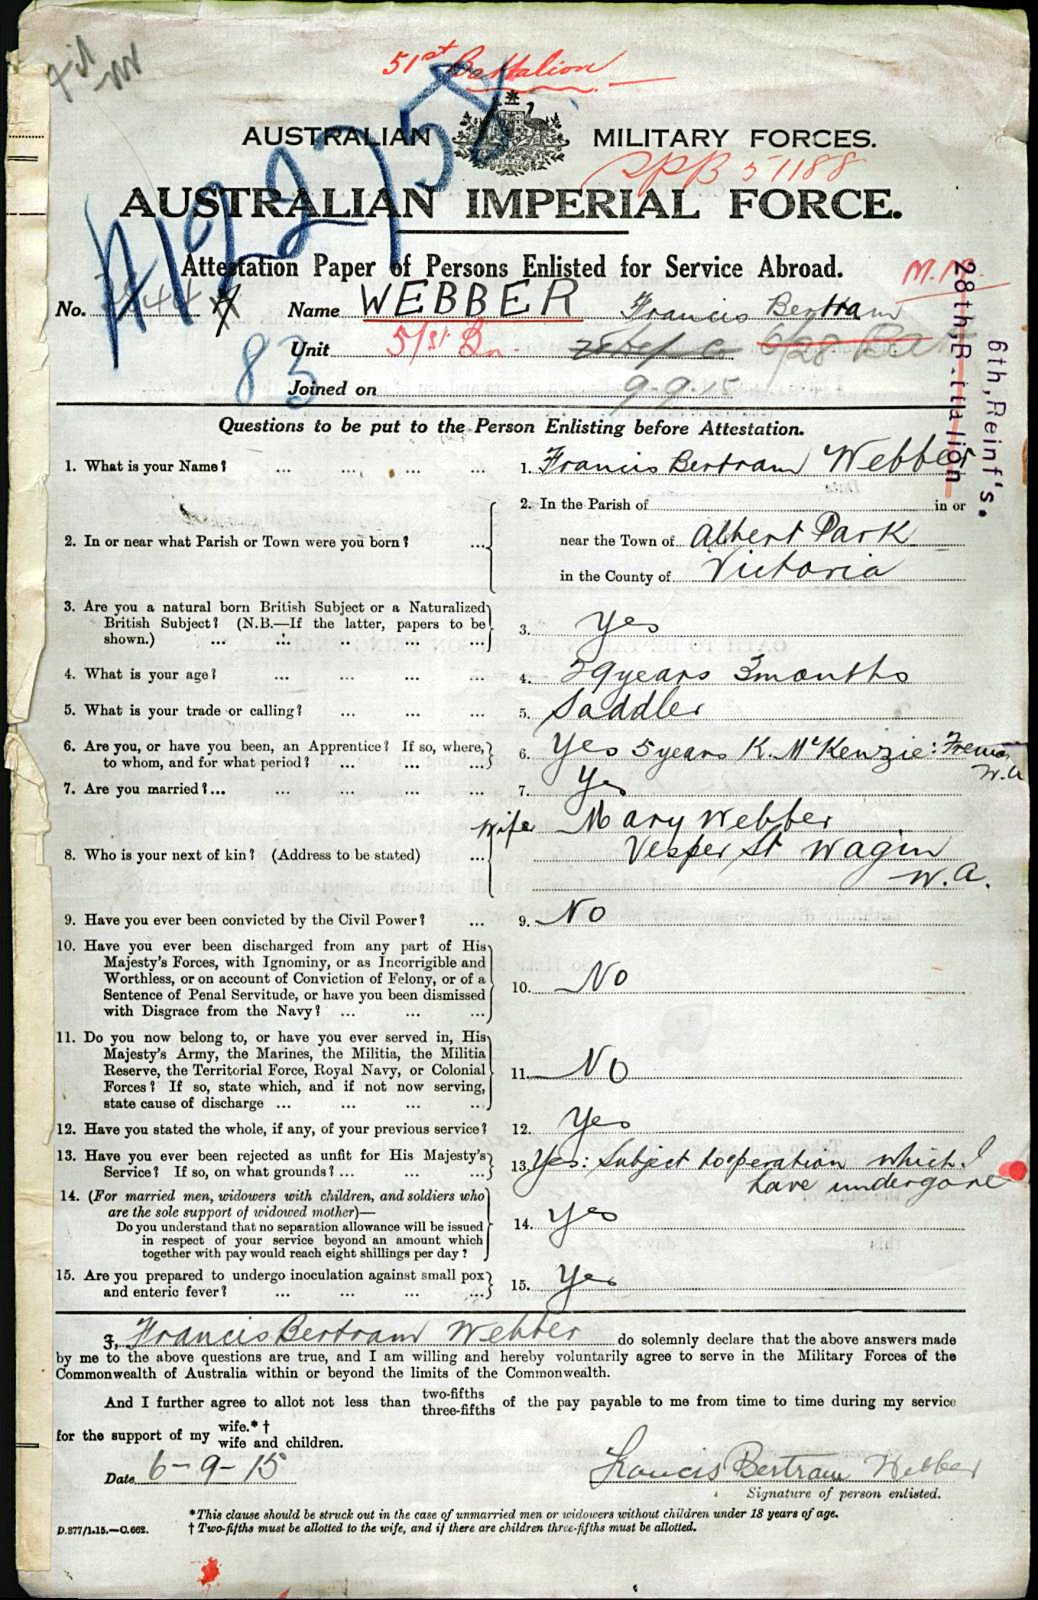 51st Battalion
AUSTRALIAN MILITARY FORCES.
SPB 51188
AUSTRALIAN IMPERIAL FORCE.
Attestation Paper of Persons Enlisted for Service Abroad.
M.M.
28th, Battalion
6th, Reinf's.
No. Name WEBBER Francis Bertram
83
Unit 51st Bn. 6/28 Batt
Joined on 9-9-15
Questions to be put to the Person Enlisting before Attestation.
1. What is your Name? ... ... ... ... 1. Francis Bertram Webber
2. In or near what Parish or Town were you born? ... 2. In the Parish of in or
near the Town of Albert Park
in the County of Victoria
3. Are you a natural born British Subject or a Naturalized
British Subject? (N.B.—If the latter, papers to be
shown.) ... ... ... ... ... 3. Yes
4. What is your age? ... ... ... ... 4. 29 years 3 months
5. What is your trade or calling? ... ... ... 5. Saddler
6. Are you, or have you been, an Apprentice? If so, where,
to whom, and for what period? ... ... ... 6. Yes 5 years K. McKenzie: Freman
W.A
7. Are you married?... ... ... ... ... 7. Yes
8. Who is your next of kin? (Address to be stated) ... wife Mary Webber
Vesper St Wagin
W.A.
9. Have you ever been convicted by the Civil Power? ... 9. No
10. Have you ever been discharged from any part of His
Majesty's Forces, with Ignominy, or as Incorrigible and
Worthless, or on account of Conviction of Felony, or of a
Sentence of Penal Servitude, or have you been dismissed
with Disgrace from the Navy? ... ... ... 10. No
11. Do you now belong to, or have you ever served in, His
Majesty's Army, the Marines, the Militia, the Militia
Reserve, the Territorial Force, Royal Navy, or Colonial
Forces? If so, state which, and if not now serving,
state cause of discharge ... ... ... ... 11. No
12. Have you stated the whole, if any, of your previous service? 12. Yes
13. Have you ever been rejected as unfit for His Majesty's
Service? If so, on what grounds? ... ... ... 13. Yes: Subject to operation which I
have undergone
14. (For married men, widowers with children, and soldiers who
are the sole support of widowed mother)—
Do you understand that no separation allowance will be issued
in respect of your service beyond an amount which
together with pay would reach eight shillings per day? 14. Yes
15. Are you prepared to undergo inoculation against small pox
and enteric fever? ... ... ... ... 15. Yes
I, Francis Bertram Webber do solemnly declare that the above answers made
by me to the above questions are true, and I am willing and hereby voluntarily agree to serve in the Military Forces of the
Commonwealth of Australia within or beyond the limits of the Commonwealth.
And I further agree to allot not less than two-fifths three-fifths of the pay payable to me from time to time during my service
for the support of my wife.*† wife and children.
Date 6-9-15
Francis Bertram Webber
Signature of person enlisted.
*This clause should be struck out in the case of unmarried men or widowers without children under 18 years of age.
D.377/1.15.—C.662. † Two-fifths must be allotted to the wife, and if there are children three-fifths must be allotted.